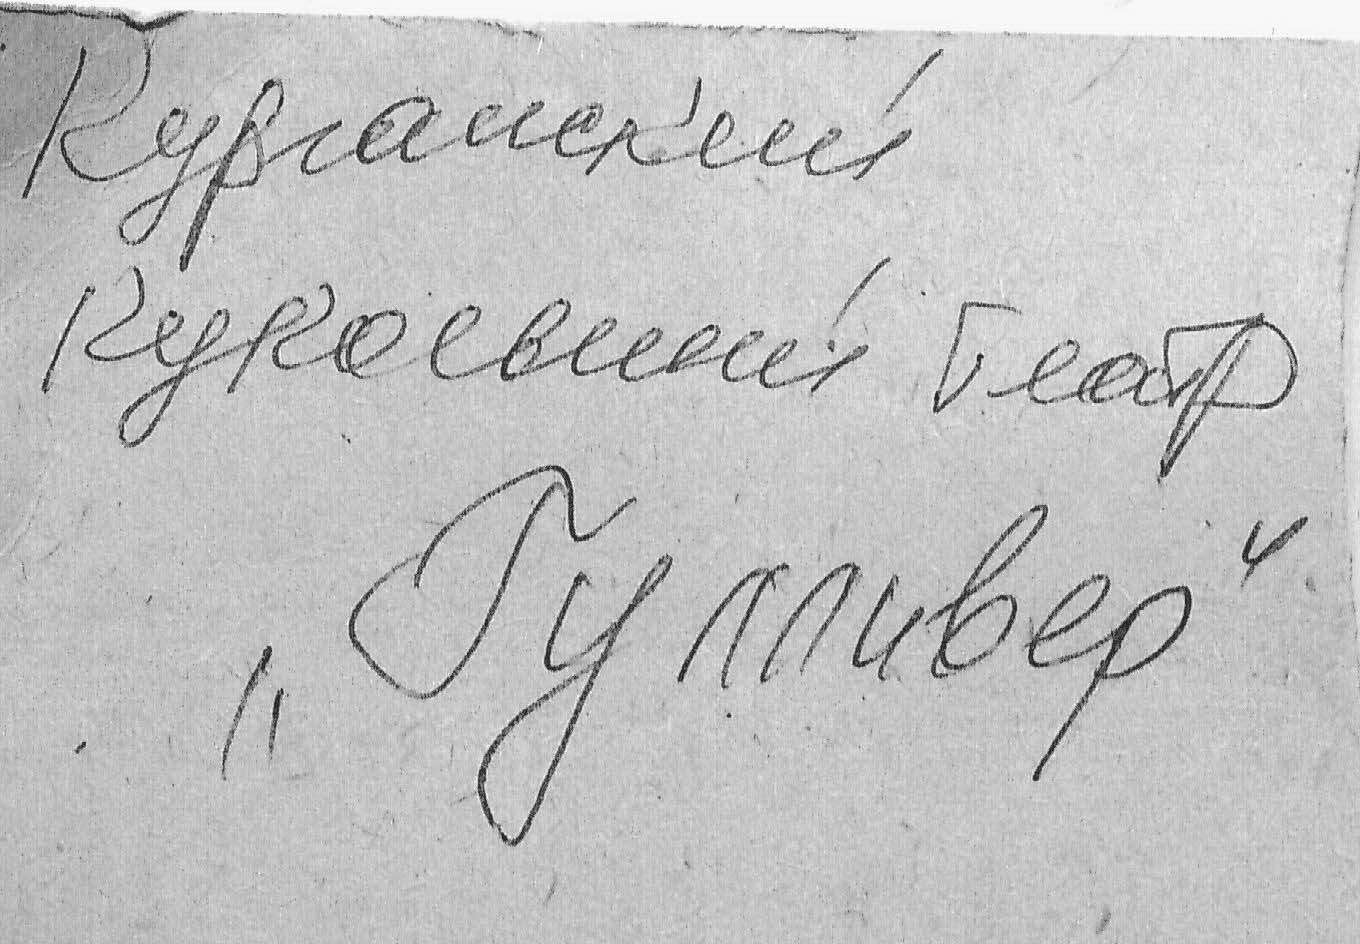 Курганский
Кукольный театр
„Гулливер“